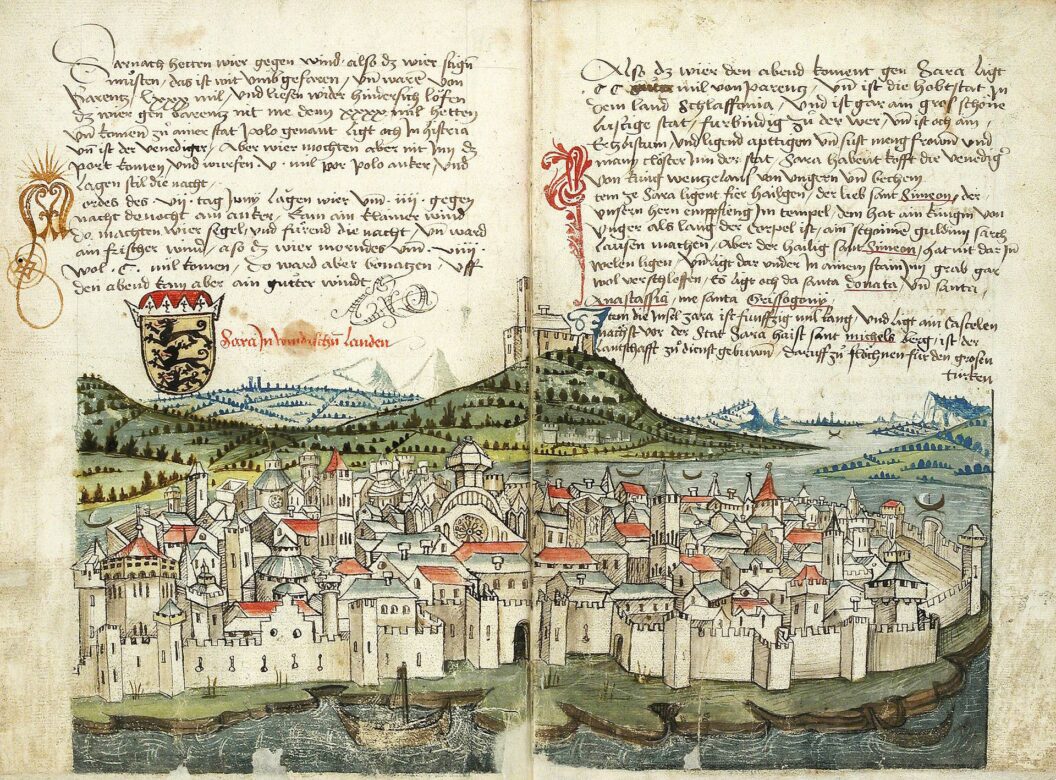 Darnach hetten wier gegen wind also dz wier stign
musten, das ist wit umb gefaren, un ware von
parentz, lxxxx mil, und liesen wider hindersich lofen
dz wier gen barentz nit me denn xxxx mil hetten
un komen zu ainer stat polo genant ligt och in histeria
un ist der venediger, Aber wier mochten aber nit jnn dz
port komen, und wurfen v mil vor polo anker, und
lagen stil die nacht
ordes des vii tag juny lagen wier gegen
nacht denocht am anker, kam ain klainer wind
do machten wier segel, und furend die nacht, un ward
ain frischer wind, aso dz wier morendes umm viiii
wol C mil komen, Do ward aber uff
den abend kam aber ain gutter windt
Sara jn windischn landen
Also dz wier den abend koment gen Sara ligt
CC mil von parentz, un ist die hobtstat jn
dem land Schlaffonia, und ist gar ain gros schöne
lustige stat, furbindig zu der wer, un ist och ain
Ertzbistum, und ligend apttigen un sust meng frown und
many closter jnn der stat, Sara habent kofft die venedigr
von küng wentzelaus von ungern un bechem
tem ze Sara ligent fier hailgen, der lieb sant Simeon, der
unsern hern empffieng jm tempel, dem hat ain küngin von
unger als lang der corpel ist, ain schoinne guldiny sarch
laussen machen, aber der hailig sant Simeon, hat nit dar jn
welen ligen, un ligt dar under jn ainem stainjm grab gar
wol verschlossen, Es ligt och da santa donata un santa
Anastassia, me santa Grissogony
tem die jnsel zara ist funffzig mil lang, und ligt ain Castelen
nächst vor der stat Sara haist sant michels berg, ist der
lantschafft zu dienst gebuwn, daruff zu flöchnen für den grosen
turken